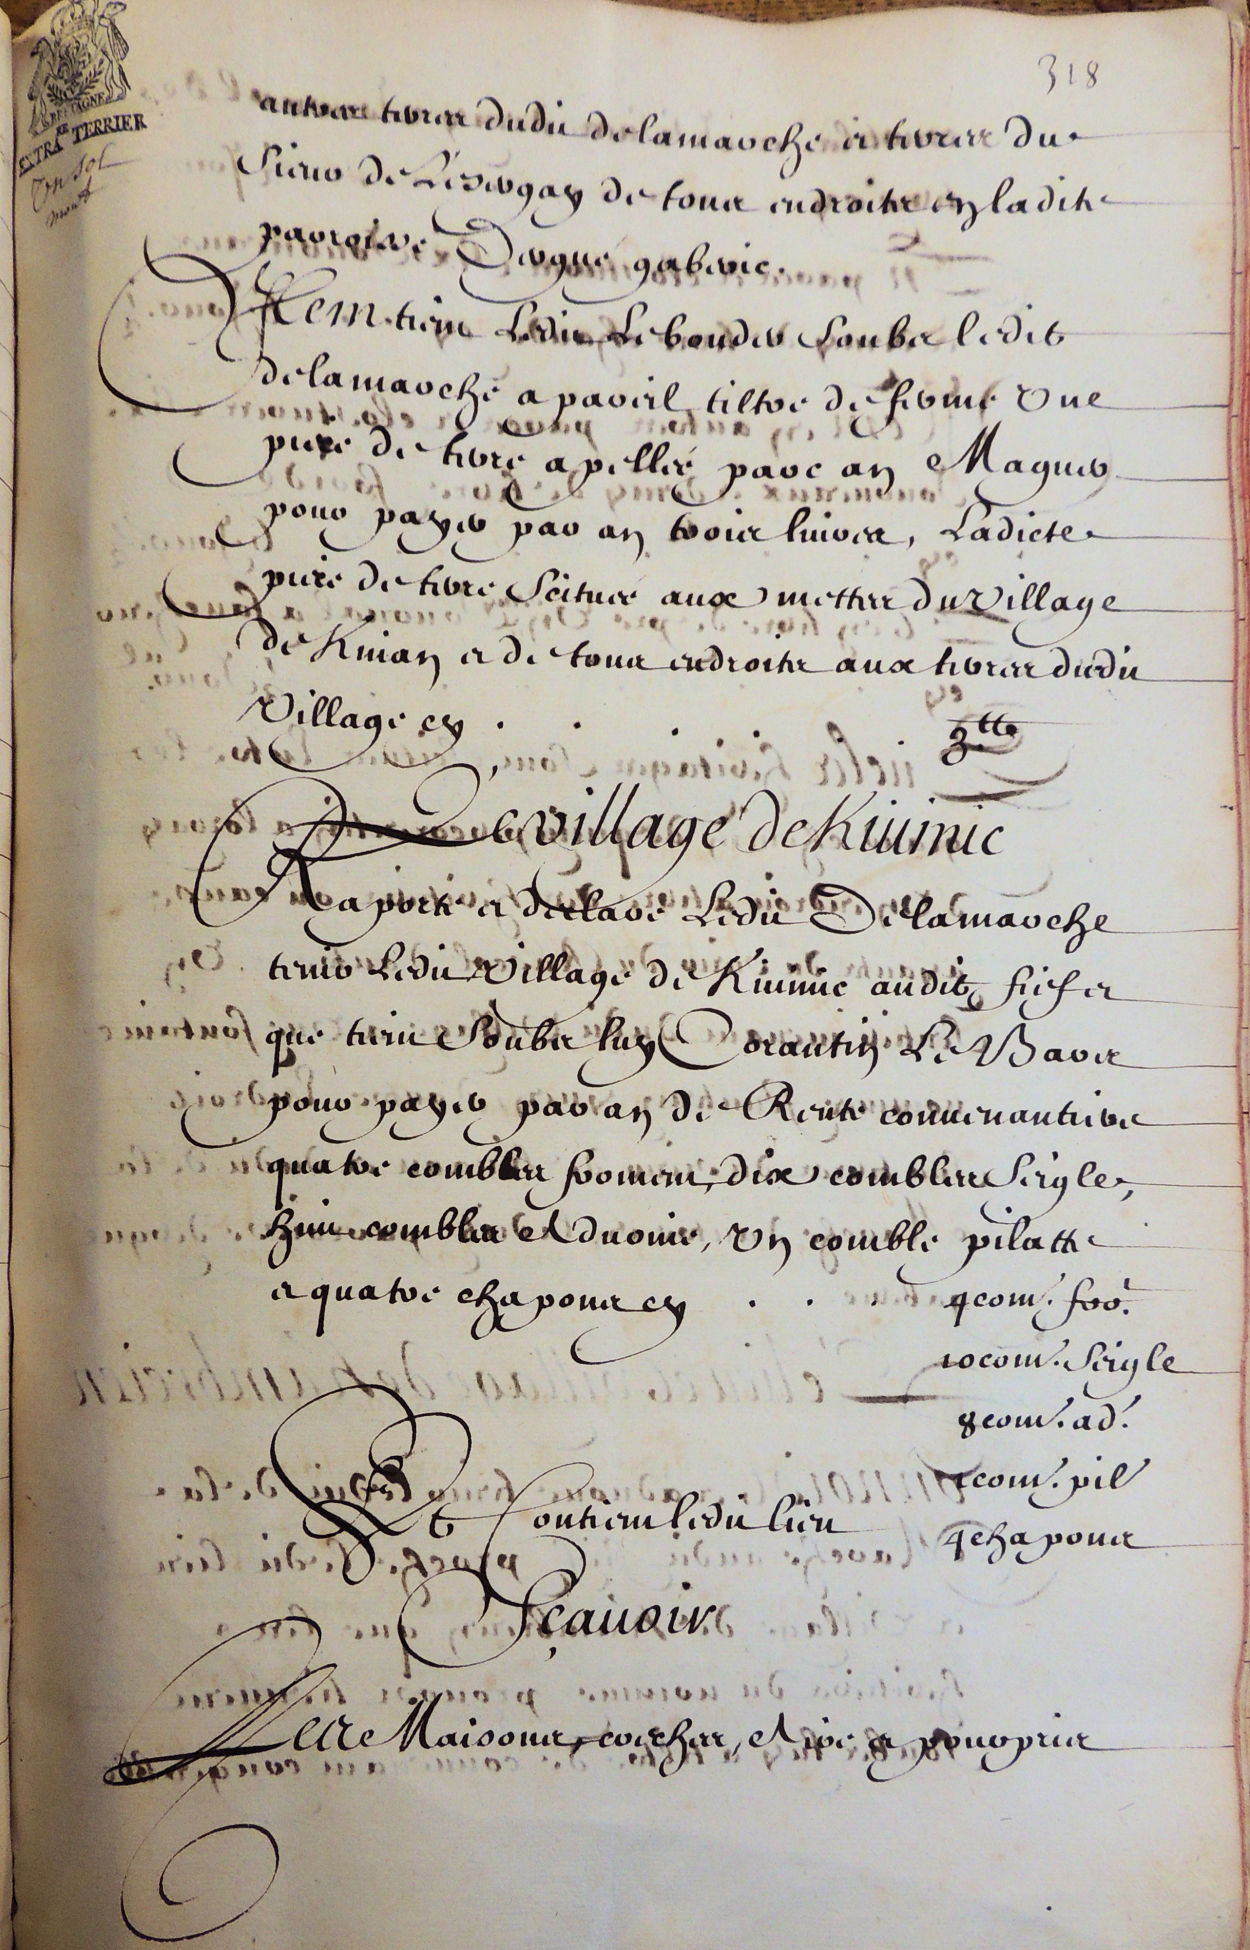 318
BRETAGNE
EXTRA TERRIER
autres terres dudit de la marche et terres du
Sieur de Lesergay de tous endroits en ladite
parroisse Dergué gaberic.
Item tient Ledit Le bouder soubz ledit
de la marche a pareil tiltre de ferme Une
piece de terre apellée parc an Maguer
pour payer par an trois livres, Ladicte
piece de terre Scituée aux mettes du Village
de Kivian et de tous endroits aux terres dudit
Village cy . . 3tt
Le village de Kivinic
Raporte et declare Ledit De la marche
tenir Ledit Village de Kivinic audit fief et
que tient Soubz luy Corantin Le Barz
pour payer par an de Rente convenantiere
quatre combles froment, dix combles Seigle,
huit combles Advoine, Un comble pilatte
et quatre chapons cy . . . 4 com. fro.
10 com. Seigle
8 com. ad.
1 com. pil
4 chapons
Et Contient ledit lieu
Sçauoir
Les Maisons, creches, Aire et pourpris